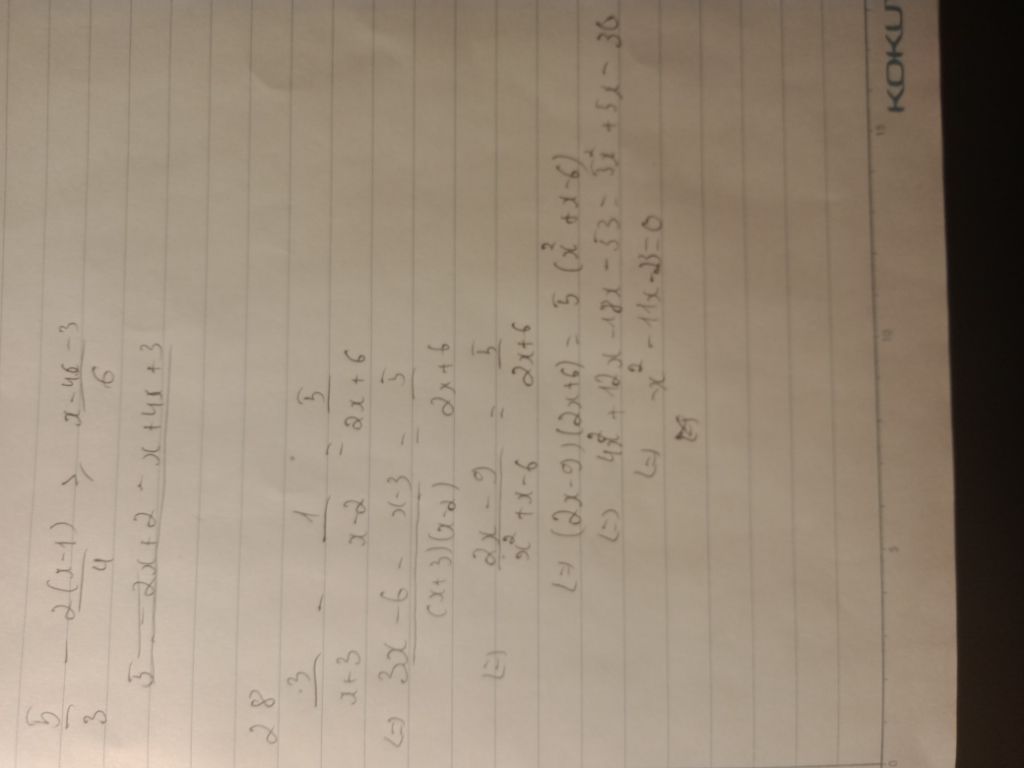 5/3 - 2(x-1)/4 > x-4(6-3)/6
5 - 2x+2 - x+4x+3
28
3/x+3 - 1/x-2 = 5/2x+6
(=) 3x-6 - x-3/(x+3)(x-2) = 5/2x+6
(=) 2x-9/x²+x-6 = 5/2x+6
(=) (2x-9)(2x+6) = 5(x²+x-6)
(=) 4x²+12x-18x-53 = 5x²+5x-30
(=) -x²-11x-23=0
KOKU